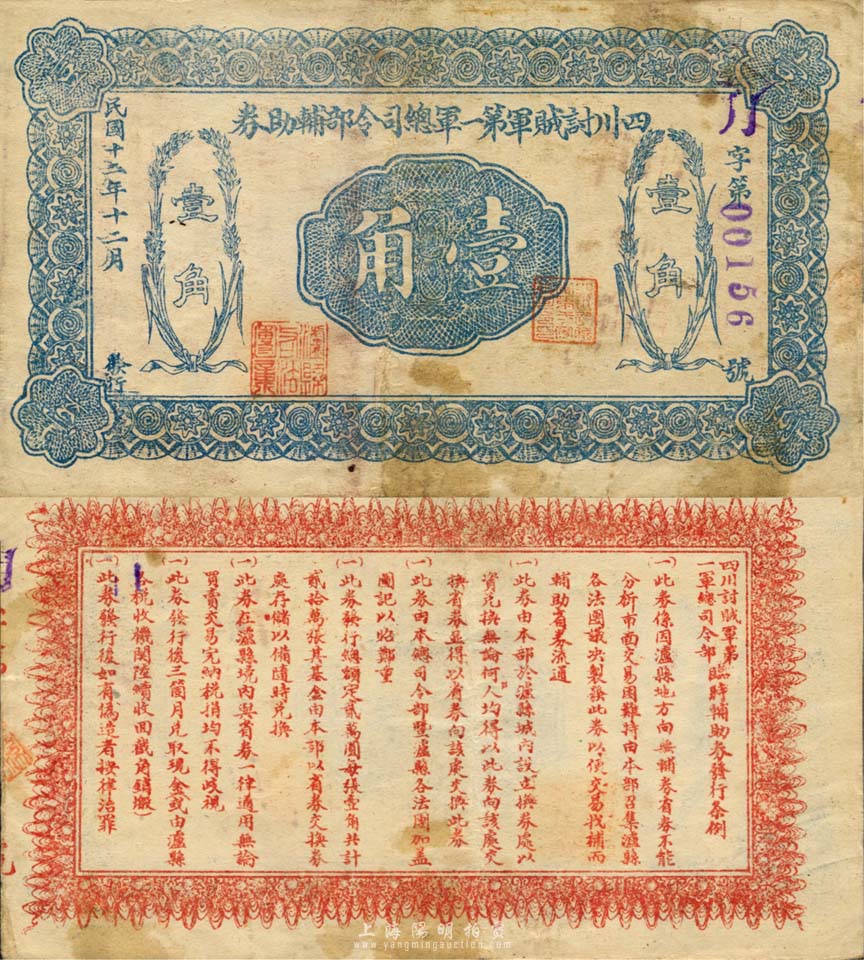 四川討賊軍第一軍總司令部輔助券
字第00156號
壹角
壹角
壹角
民國十二年十二月
發行
四川討賊軍第一軍總司令部臨時輔助券發行条例
㈠此券係因瀘縣地方向無輔券省券不能
分析市面交易困難特由本部召集瀘縣
各法團議决製發此券以便交易找補而
輔助省券流通
㈠此券由本部於瀘縣城内設立換券處以
資兑換無論何人均得以此券向該處交
換省券並得以省券向該處交換此券
㈠此券由本總司令部暨瀘縣各法團加蓋
圖記以昭鄭重
㈠此券發行總額定貳萬圓每張壹角共計
貳拾萬張其基金由本部以省券交換券
處存儲以備隨時兑換
㈠此券在瀘縣境内與省券一律通用無論
買賣交易完納税捐均不得歧視
㈠此券發行後三箇月兑取現金或由瀘縣
各税收機関陸續收回截角銷燬
㈠此券發行後如有偽造者按律治罪
上海陽明拍賣
www.yangmingauction.com